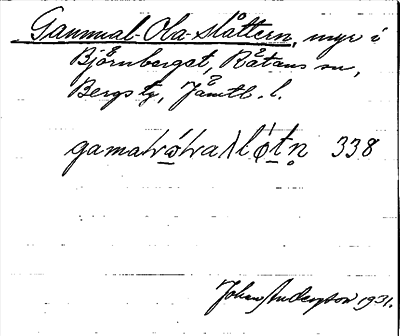 Gammal-Ola-slåttern, myr i
Björnberget, Råtans sn,
Bergs tg, Jämtl. l.
338
Johan Andersson 1931.